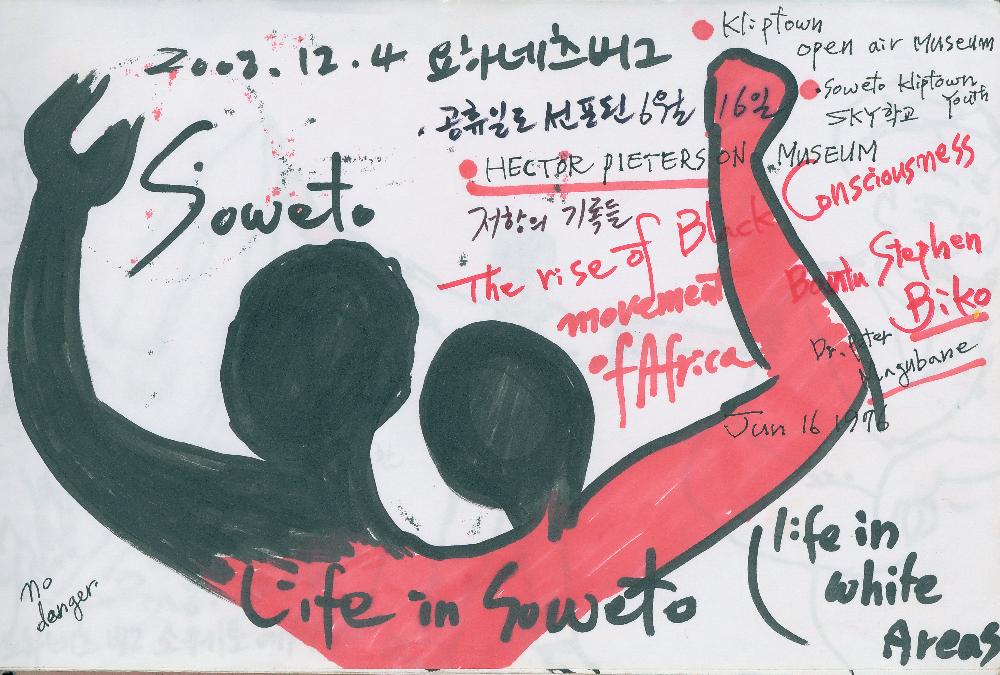 2003.12.4 요하네스버그
Kliptown
open air Museum
· Soweto Kliptown
Youth
SKY학교
. 공휴일로 선포된 6월 16일
HECTOR PIETERSON MUSEUM
저항의 기록들
Soweto
The rise of Black Consciousness
movement
of Africa
Bantu Stephen
Biko
Dr. Peter
Magubane
Jun 16 1976
Life in Soweto
life in
white
Areas
no
danger.